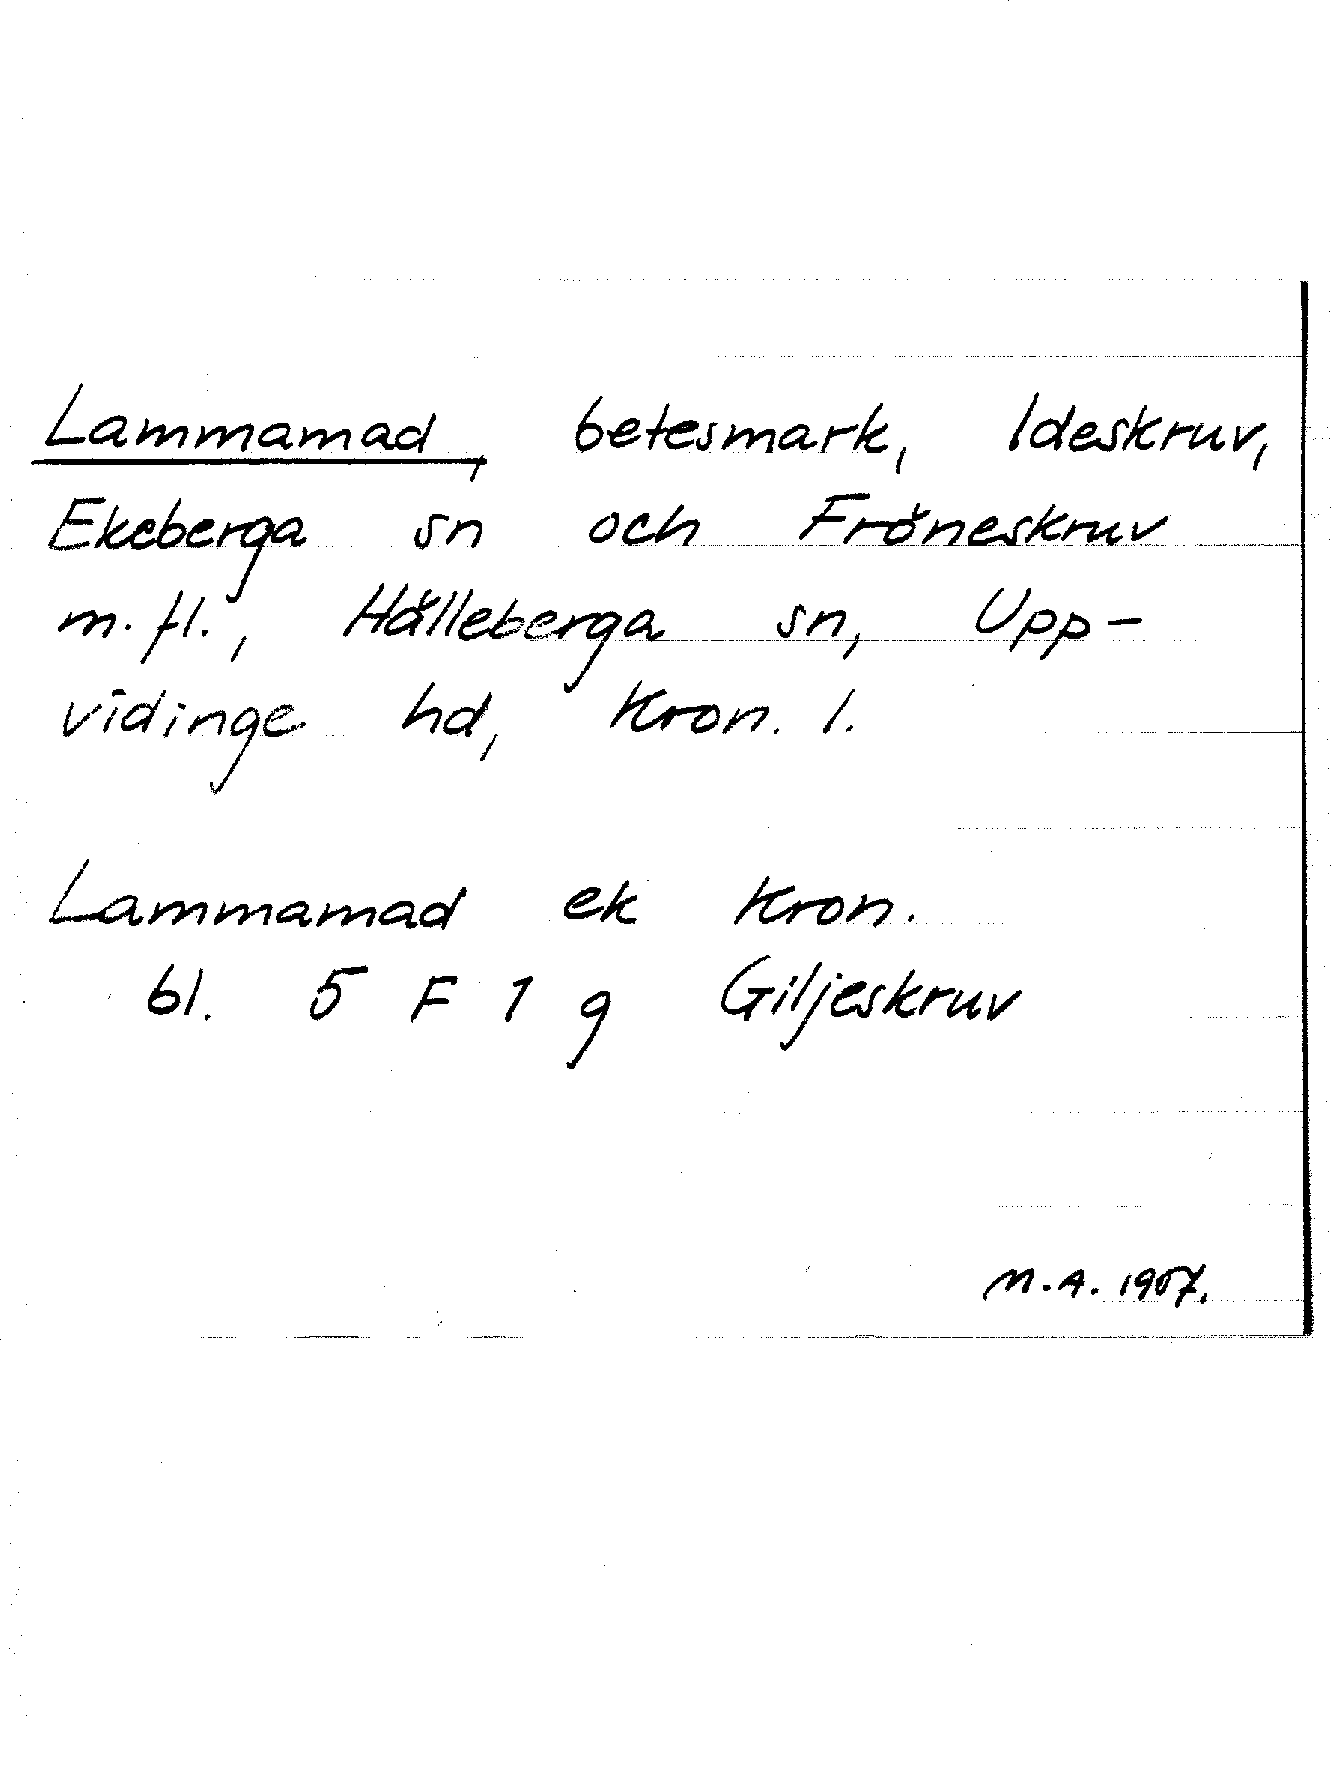 Lammamad, betesmark, Ideskruv,
Ekeberga sn och Fröneskruv
m. fl., Hälleberga sn, Upp-
vidinge hd, Kron. l.
Lammamad ek Kron.
bl. 5 F 1 g Giljeskruv
M.A. 1957.